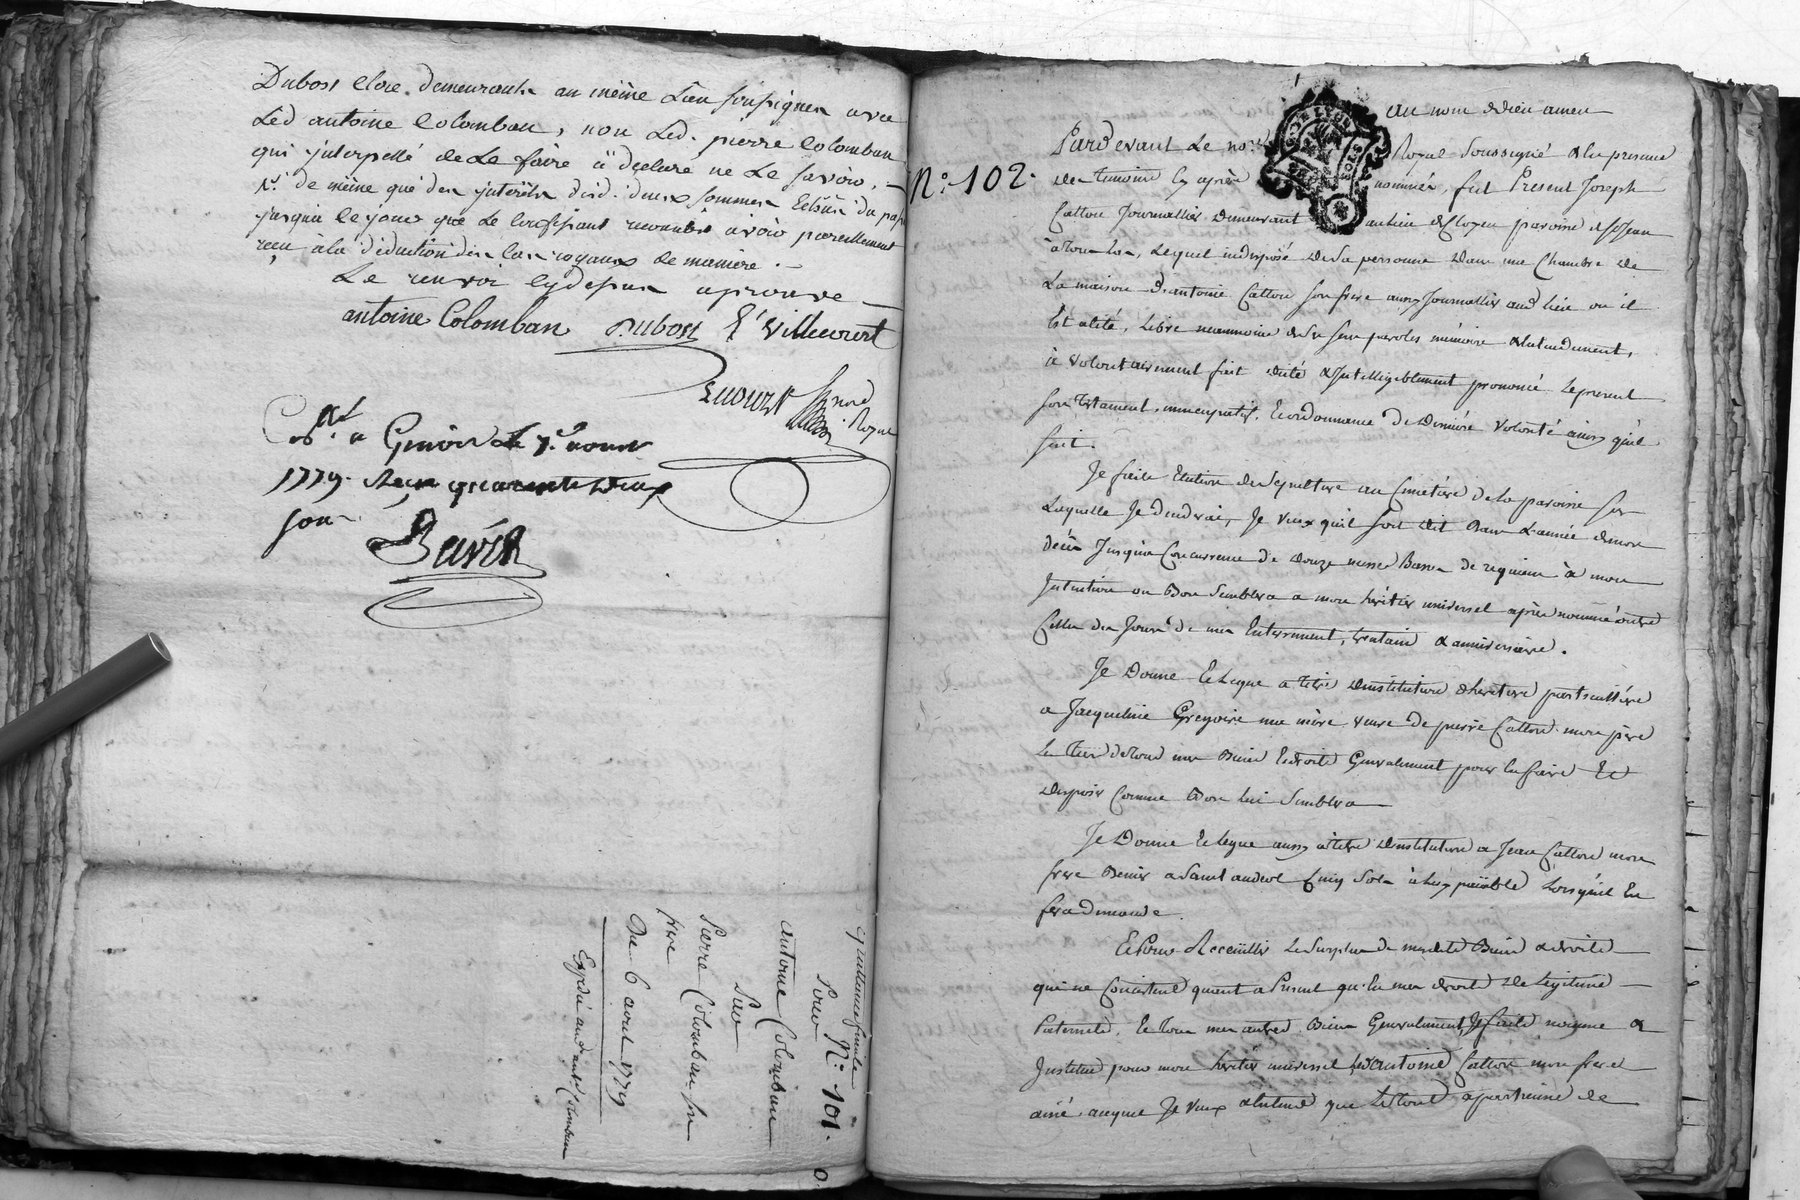 Dubost clerc demeurants au même Lieu soussignés avec
Led antoine Colomban, non Led. pierre Colomban
qui interpellé de Le faire a déclaré ne Le savoir,
de même que des interêts desd. deux sommes
jusques le jour que Le confessant reconnoit avoir pareillement
reçu à la déduction des royaux de maniere.
Le renvoi cy dessus approuvé
antoine Colomban Dubost Villecourt
nore
Royal
a le 7e aoust
1779. Reçu quarante deux
sous
quittance finale
N.o 101.
Pour
antoine Colomban
Sur
Pierre Colomban son
frere
Du 6 aout 1779
Expédié aud. ant. Colomban
au nom de dieu amen
N.o 102.
Pardevant Le no.re Royal Soussigné & En presence
des temoins cy après nommés, fut Present Joseph
Catton Journallier demeurant paroisse de St Jean
Lequel indisposé de Sa personne dans une Chambre de
La maison d'antoine Catton son frere aussy Journallier aud lieu ou il
Est alité, Libre neanmoins de ses sens paroles mémoire & entendement,
a volontairement fait dicté & Intelligiblement prononcé Le present
son testament nuncupatif Et ordonnance de Derniere volonté ainsy qu'il
suit.
Je fais Election de sepulture au Cimetiere de la paroisse sur
Laquelle Je decederai, Je veux qu'il soit dit dans L'année de mon
décès Jusqu'a Concurrence de douze messes Basses de requiem à mon
Intention ou Bon Semblera a mon héritier universel après nommé outre
Celles des Jours de mes Enterrement, trentain & anniversaire.
Je Donne & Legue a titre d'institution d'heritiere particulière
a Jacqueline Gregoire ma mère veuve de pierre Catton mon père
Le tiers de tous mes Biens & droits Generalement pour En faire Et
disposer Comme Bon Lui Semblera
Je Donne & Legue aussy à titre d'institution a Jean Catton mon
frere a Saint andeol Cinq Sols à Luy païable Lorsqu'il En
fera demande.
Et Pour Receuillir Le Surplus de mesdits Biens & droits
qui ne Consistent quant a Present qu'En mes droits de Legitime
Paternels, Et tous mes autres Biens Generalement, Je fais nomme &
Institue pour mon héritier universel led antoine Catton mon frere
ainé, auquel Je veux & entend que Le tout apartienne de